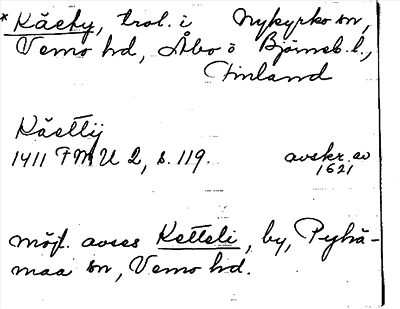 * Kästy, trol. i Nykyrko sn,
Vemo hd, Åbo o Björneb. l.,
Finland
Kästtÿ
1411 FMU 2, s. 119. avskr. av
1621
möjl. avses Ketteli, by, Pyhä-
maa sn, Vemo hd.